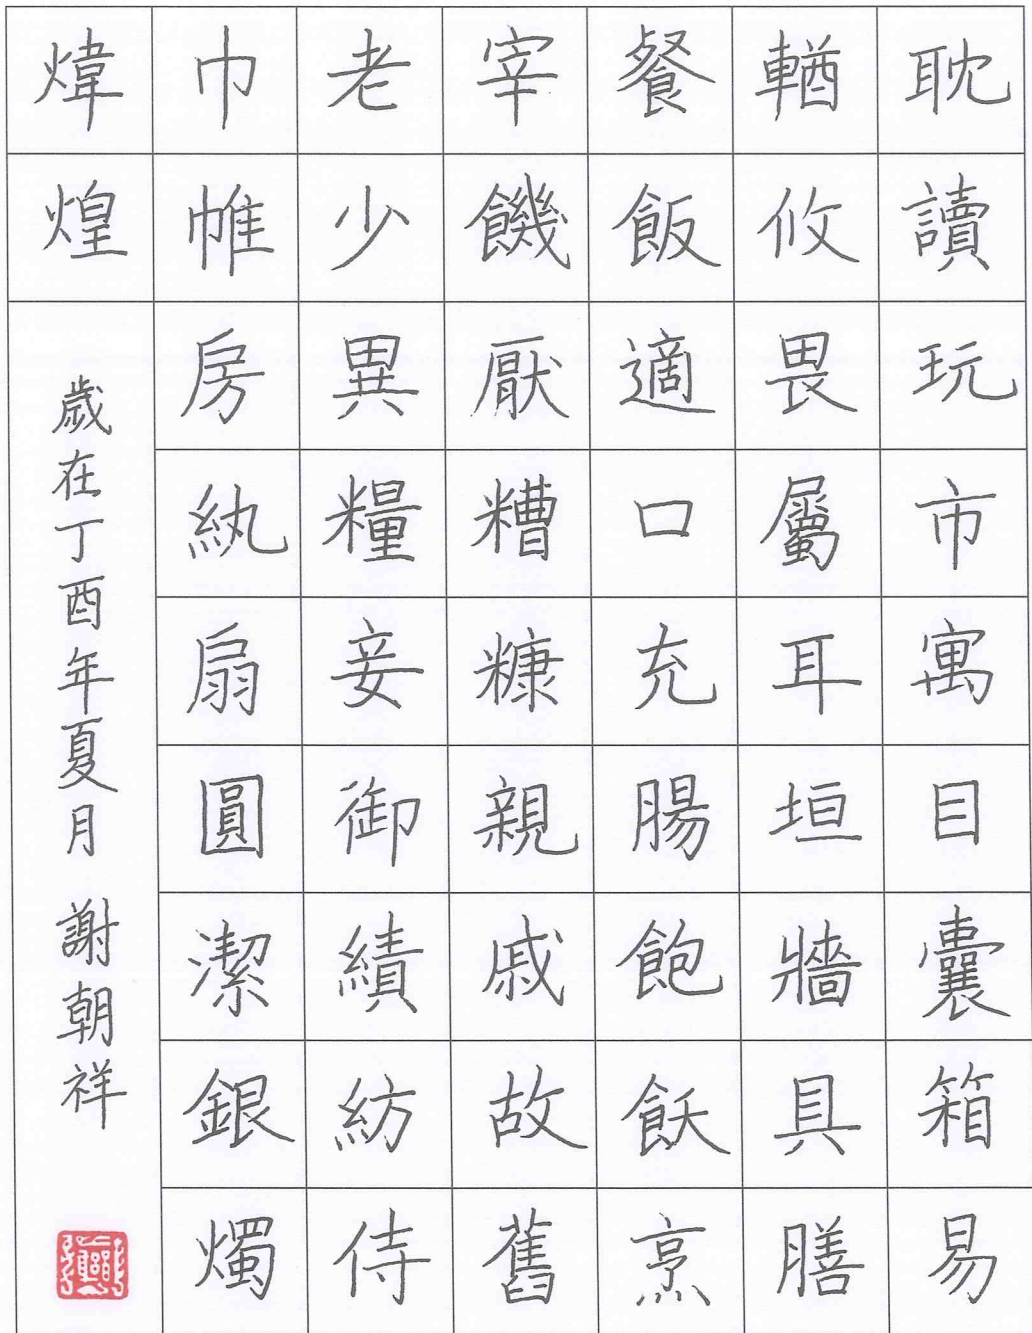 耽讀玩市寓目囊箱易
輶攸畏屬耳垣牆具膳
餐飯適口充腸飽飫烹
宰饑厭糟糠親戚故舊
老少異糧妾御績紡侍
巾帷房紈扇圓潔銀燭
煒煌
歲在丁酉年夏月 謝朝祥